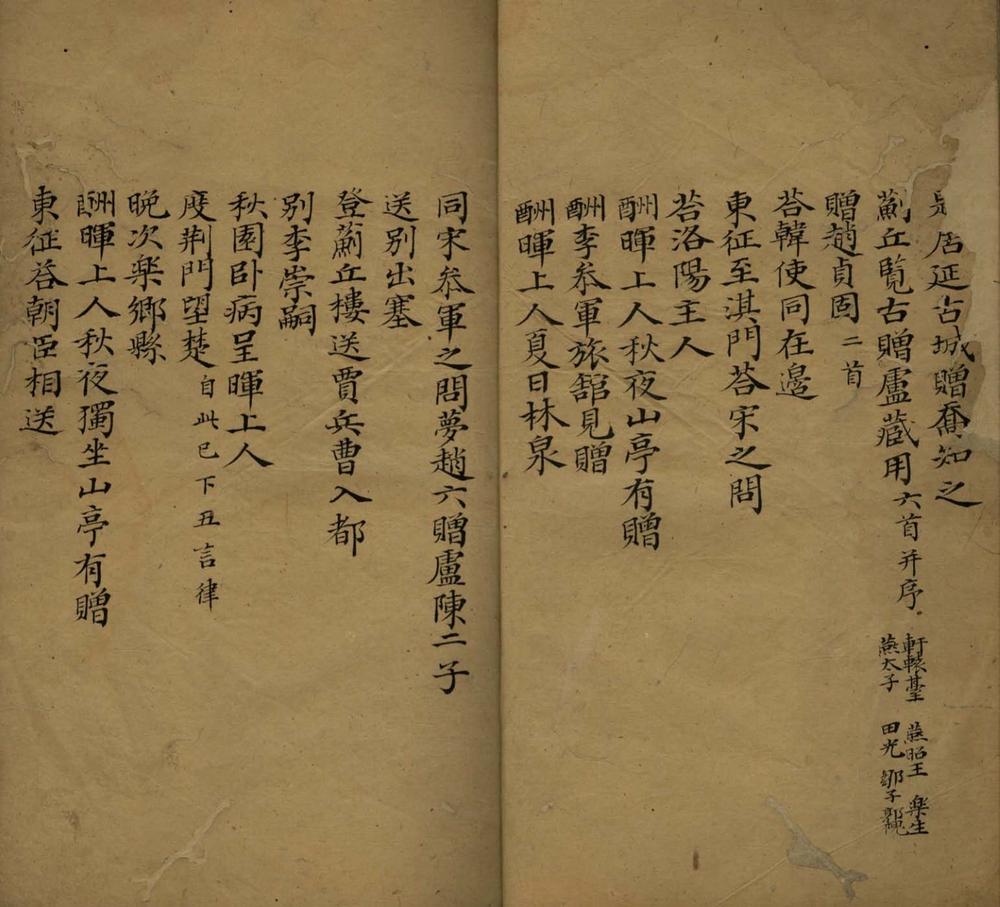 居延古城贈喬知之
薊丘覽古贈盧藏用六首并序
軒轅臺 燕昭王 樂生
燕太子 田光 鄒子 郭隗
贈趙貞固二首
荅韓使同在邊
東征至淇門荅宋之問
荅洛陽主人
酬暉上人秋夜山亭有贈
酬李叅軍旅舘見贈
酬暉上人夏日林泉
同宋叅軍之問夢趙六贈盧陳二子
送别出塞
登薊丘樓送賈兵曹入都
别李崇嗣
秋園卧病呈暉上人
度荆門望楚自此已下五言律
晚次樂鄉縣
酬暉上人秋夜獨坐山亭有贈
東征荅朝臣相送